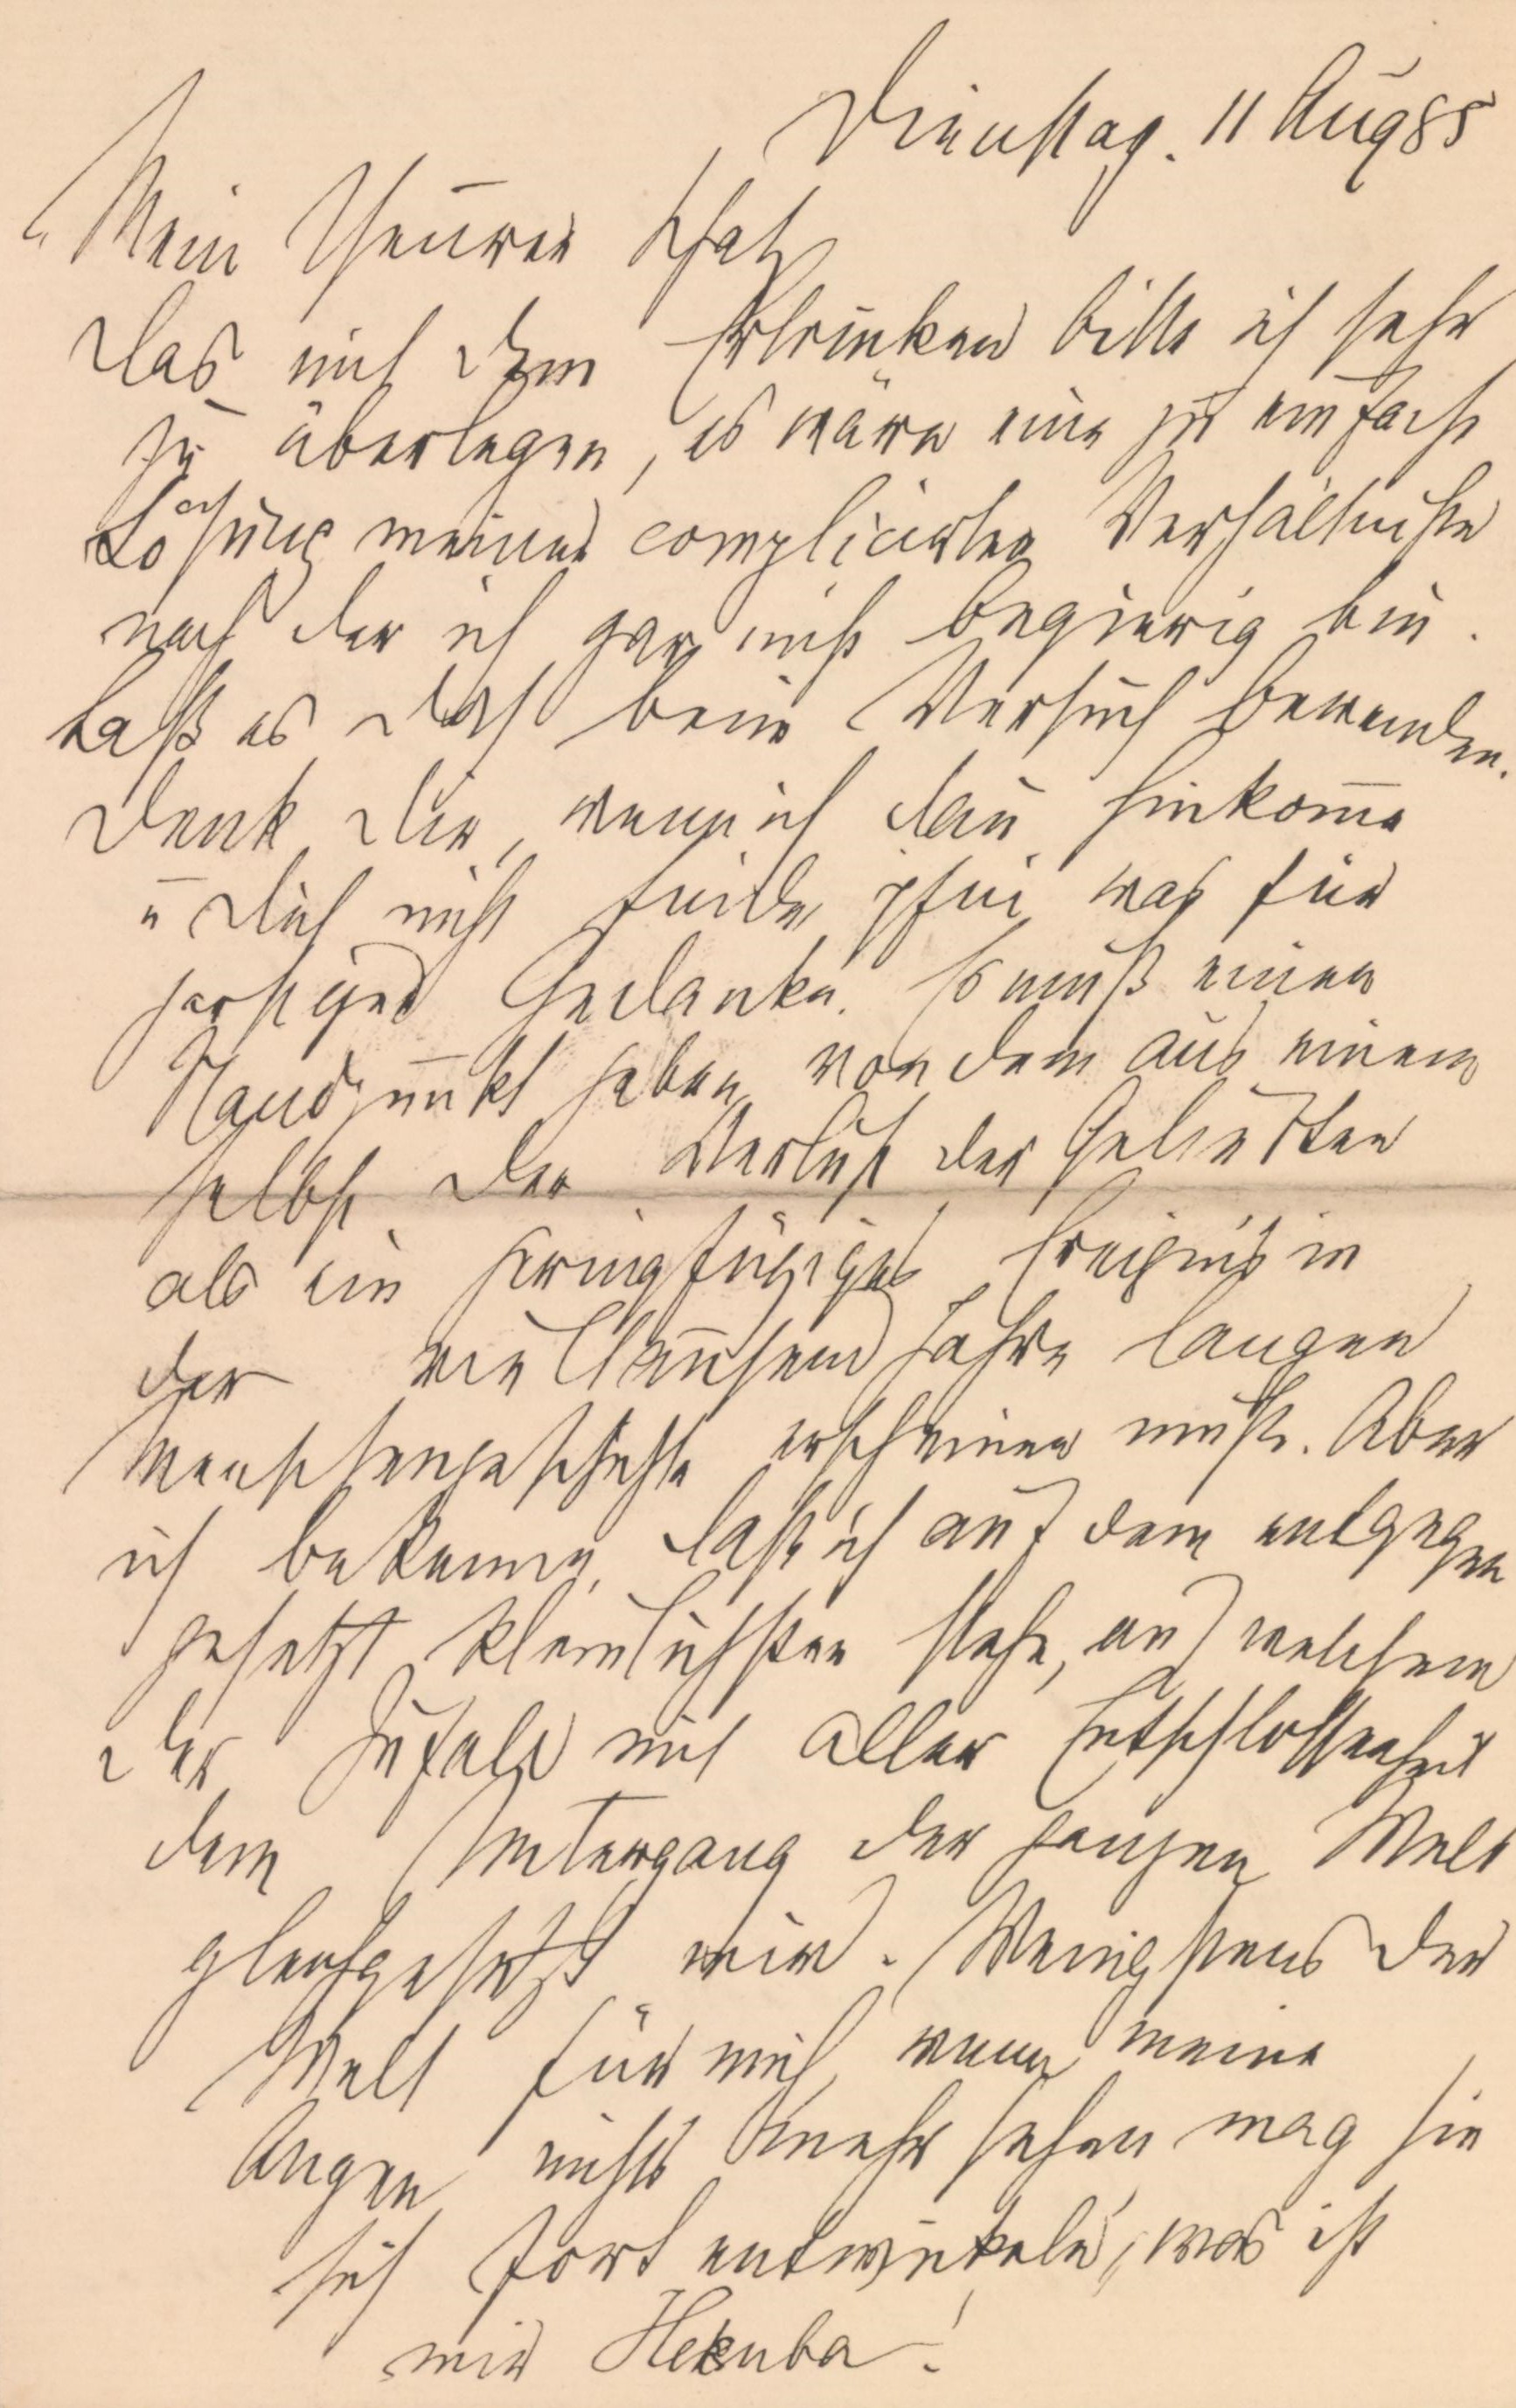 Dienstag. 11 Aug 85
Mein theurer Schatz
Das mit dem Ertrinken bitte ich sehr
zu überlegen, es wäre eine zu einfache
Lösung meiner complicirten Verhältnisse
nach der ich gar nicht begierig bin.
Laß es doch beim Versuch bewenden.
Denk Dir, wenn ich dañ hinkom̄e
u Dich nicht finde, pfui was für
garstiger Gedanke. Es muß einen
Standpunkt geben, von dem aus einem
selbst der Verlust der Geliebten
als ein geringfügiges Ereignis in
der vieltausend Jahre langen
Menschengeschichte erscheinen muß. Aber
ich bekenne, daß ich auf dem entgegen
gesetzt kleinlichsten stehe, auf welchem
der Zufall mit aller Entschlossenheit
dem Untergang der ganzen Welt
gleichgesetzt wird. Wenigstens der
Welt für mich, wenn meine
Augen nichts mehr sehen mag sie
sich fort entwickeln, was ist
mir Hekuba!